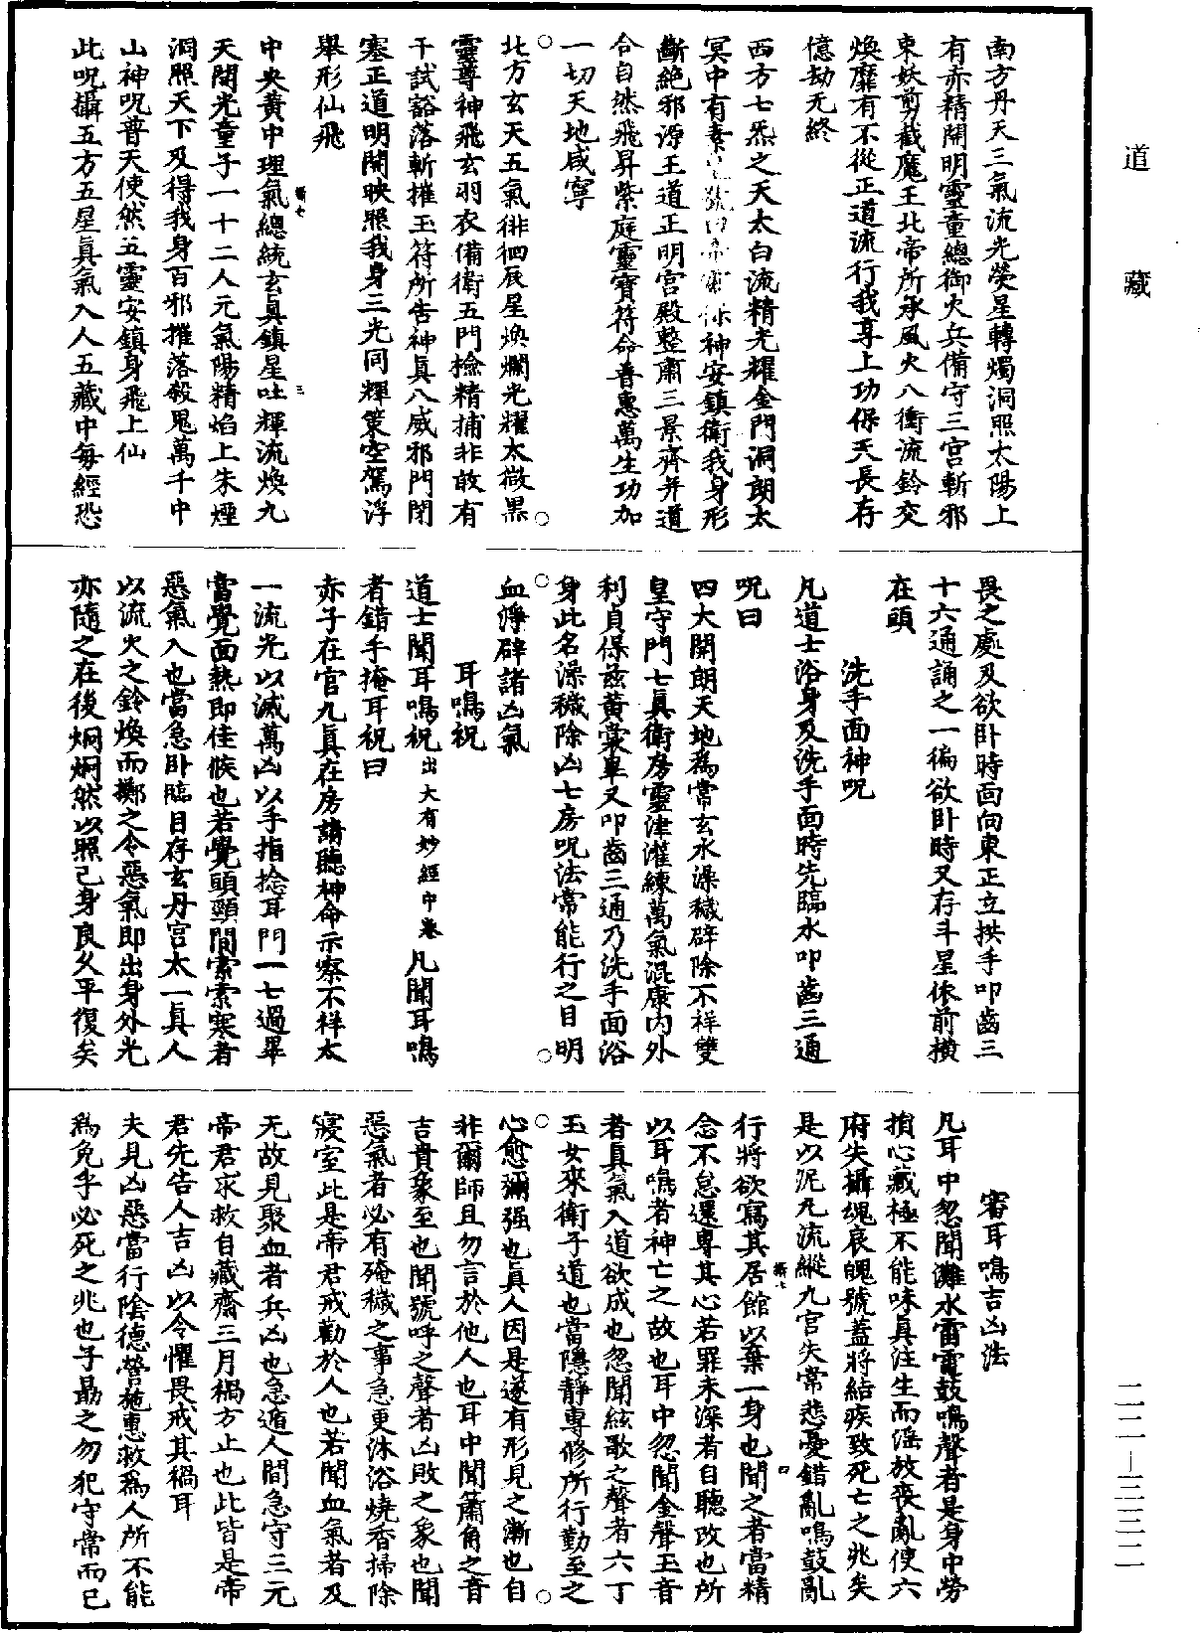 道藏
南方丹天三氣流光熒星轉燭洞照太陽上
有赤精開明靈童總御火兵備守三宮斬邪
束妖剪截魔王北帝所承風火八衝流鈴交
煥靡有不從正道流行我享上功保天長存
億劫无終
西方七炁之天太白流精光耀金門洞朗太
冥中有素神安鎮衛我身形
斷絕邪源王道正明宮殿整肅三景齊并道
合自然飛昇紫庭靈寶符命普惠萬生功加
一切天地咸寧
北方玄天五氣徘徊辰星煥爛光耀太微黑
靈尊神飛玄羽衣備衛五門撿精捕非敢有
干試豁落斬摧玉符所告神真八威邪門閉
塞正道明開映照我身三光同輝策空駕浮
舉形仙飛
中央黃中理氣總統玄真鎮星吐輝流煥九
天開光童子一十二人元氣陽精焰上朱煙
洞照天下及得我身百邪摧落殺鬼萬千中
山神呪普天使然五靈安鎮身飛上仙
此呪攝五方五星真氣入人五藏中每經恐
畏之處及欲臥時面向東正立拱手叩齒三
十六通誦之一徧欲臥時又存斗星依前橫
在頭
洗手面神呪
凡道士浴身及洗手面時先臨水叩齒三通
呪曰
四大開朗天地為常玄水澡穢辟除不祥雙
皇守門七真衛房靈津灌練萬氣混康內外
利貞保茲黃裳畢又叩齒三通乃洗手面浴
身此名澡穢除凶七房呪法常能行之目明
血淨辟諸凶氣
耳鳴祝
道士聞耳鳴祝出大有妙經中卷凡聞耳鳴
者錯手掩耳祝曰
赤子在宮九真在房請聽神命示察不祥太
一流光以滅萬凶以手指捻耳門一七過畢
當覺面熱即佳候也若覺頭頸間索索寒者
惡氣入也當急臥臨目存玄丹宮太一真人
以流火之鈴煥而擲之令惡氣即出身外光
亦隨之在後炯炯然以照己身良久平復矣
審耳鳴吉凶法
凡耳中忽聞灘水雷電鼓鳴聲者是身中勞
損心藏極不能味真注生而淫放喪亂使六
府失攝魂哀魄號蓋將結疾致死亡之兆矣
是以泥丸流縱九宮失常悲憂錯亂鳴鼓亂
行將欲寫其居館以棄一身也聞之者當精
念不怠還專其心若罪未深者自聽改也所
以耳鳴者神亡之故也耳中忽聞金聲玉音
者真氣入道欲成也忽聞絃歌之聲者六丁
玉女來衛子道也當隱靜專修所行勤至之
心愈彌强也真人因是遂有形見之漸也自
非爾師且勿言於他人也耳中聞簫角之音
吉貴象至也聞號呼之聲者凶敗之象也聞
惡氣者必有殗穢之事急更沐浴燒香掃除
寢室此是帝君戒勸於人也若聞血氣者及
无故見聚血者兵凶也急遁人間急守三元
帝君求救自藏齋三月禍方止也此皆是帝
君先告人吉凶以令懼畏戒其禍耳
夫見凶惡當行陰德營施惠救為人所不能
為免乎必死之兆也子勗之勿犯守常而已
二二-三三二